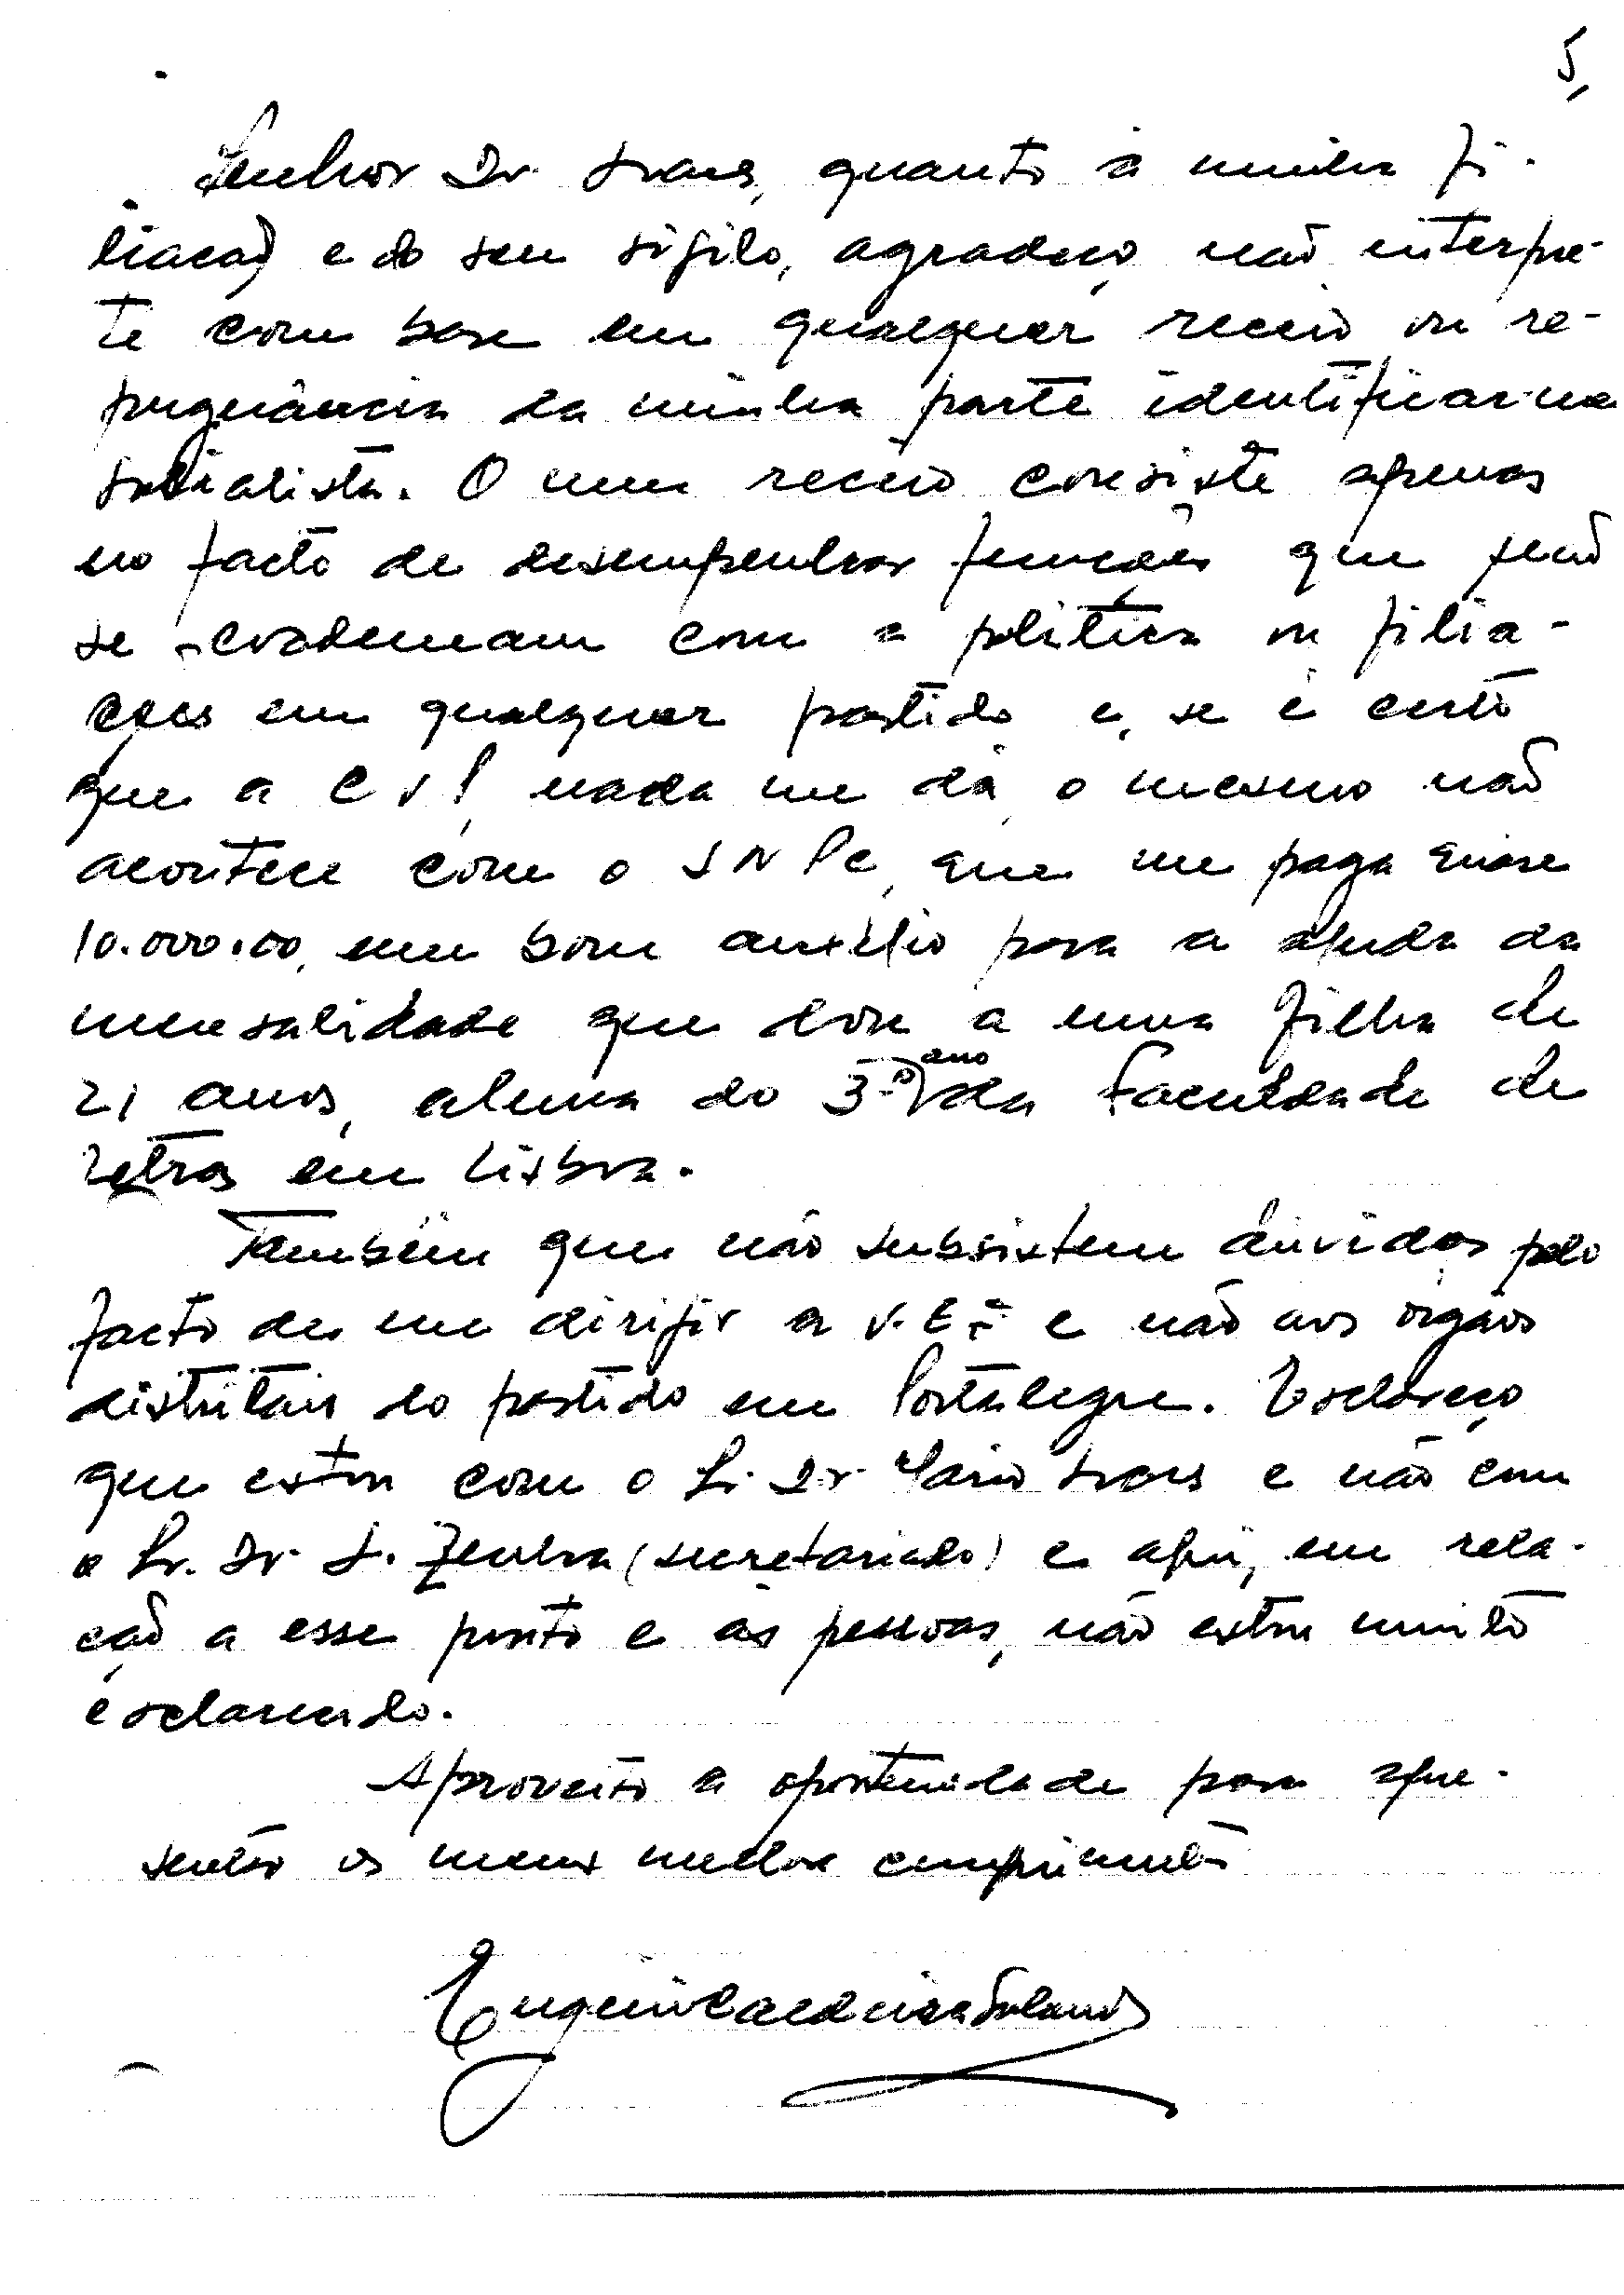 5,
Senhor Dr. Soares, quanto à minha fi-
liação e do seu sigilo, agradeço não interpre-
te com base em qualquer receio ou re-
pugnância da minha parte identificar-me
socialista. O meu receio consiste apenas
no facto de desempenhar funções que
se coadunam com a política ou filia-
ções em qualquer partido e, se é certo
que a CVP, nada me dá, o mesmo não
acontece com o SNPC, que me paga quase
10.000.00, um bom auxílio para a ajuda da
mensalidade que dou a uma filha de
21 anos, aluna do 3º ano da Faculdade de
Letras em Lisboa.
Também que não subsistem dúvidas pelo
facto de me dirigir a V. Exª e não aos órgãos
distritais do partido em Portalegre. Esclareço
que estou com o Sr. Dr. Mário Soares e não com
o Sr. Dr. S. Zenha (secretariado) e aqui, em rela-
ção a esse ponto e às pessoas, não estou muito
esclarecido.
Aproveito a oportunidade para apre-
sentar os meus melhores cumprimentos
Eugénio Caldeira